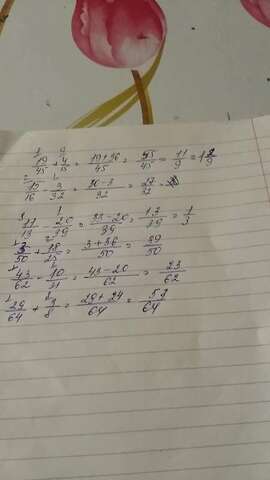 19/45 + 4/15 = 19+36/45 = 55/45 = 11/9 = 1 2/9
15/16 - 3/32 = 30-3/32 = 27/32
11/13 - 20/39 = 33-20/39 = 13/39 = 1/3
3/50 + 18/25 = 3+36/50 = 39/50
43/62 - 10/31 = 43-20/62 = 23/62
29/64 + 3/8 = 29+24/64 = 53/64